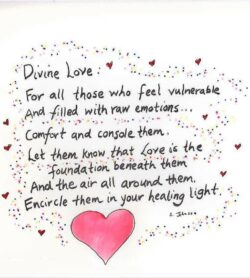 Divine Love:
For all those who feel vulnerable
And filled with raw emotions...
Comfort and console them.
Let them know that Love is the
foundation beneath them
And the air all around them.
Encircle them in your healing light.